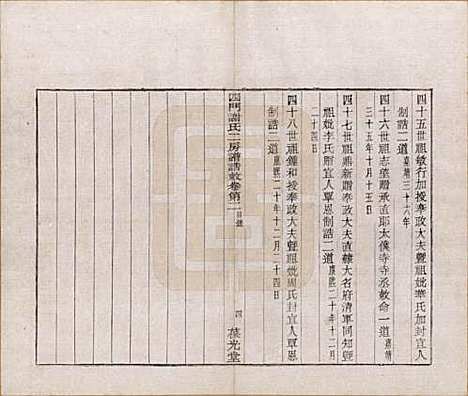 四十五世祖敏行加授奉政大夫暨祖妣華氏加封宜人
制誥二道嘉靖三十六年
四十六世祖志望贈承直郎太僕寺寺丞敕命一道嘉靖
三十五年十月十五日
四十七世祖鼎新贈奉政大夫直隸大名府清軍同知暨
祖妣李氏贈宜人覃恩制誥二道康熙二十年十二月
二十四日
四十八世祖鍾和授奉政大夫暨祖妣周氏封宜人覃恩
制誥二道康熙二十年十二月二十四日
四門謝氏二房譜誥敕卷第二 目錄 四 葆光堂